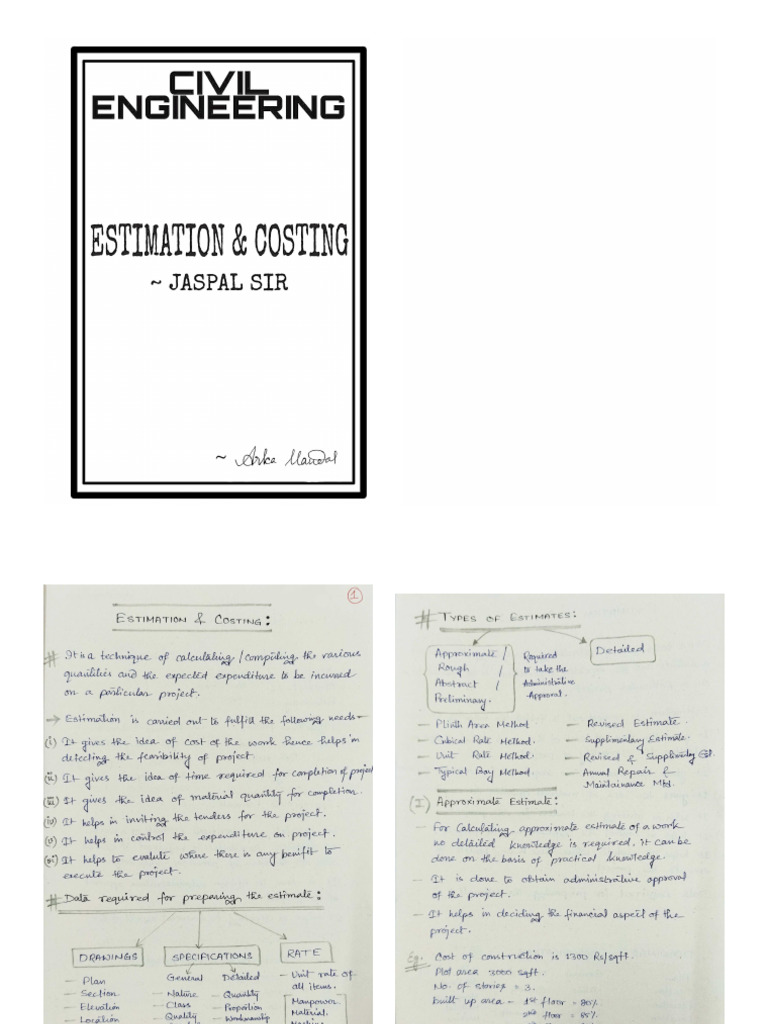 CIVIL
ENGINEERING
ESTIMATION & COSTING
~ JASPAL SIR
~ Arka Mandal
1
ESTIMATION & COSTING:
# It is a technique of calculating/computing the various
quantities and the expected expenditure to be incurred
on a particular project.
→ Estimation is carried out to fulfill the following needs-
(i) It gives the idea of cost of the work hence helps in
detecting the feasibility of project.
(ii) It gives the idea of time required for completion of project
(iii) It gives the idea of material quantity for completion.
(iv) It helps in inviting the tenders for the project.
(v) It helps in control the expenditure on project.
(vi) It helps to evaluate where there is any benifit to
execute the project.
# Data required for preparing the estimate:
DRAWINGS SPECIFICATIONS RATE
– Plan
– Section
– Elevation
– Location
General Detailed
– Nature – Quantity
– Class – Proportion
– Quality – Workmanship
– Unit rate of
all items.
Manpower
Material
# TYPES OF ESTIMATES:
Approximate /
Rough /
Abstract /
Preliminary.
Required
to take the
Administrative
Approval.
Detailed
– Plinth Area Method
– Cubical Rate Method.
– Unit Rate Method.
– Typical Bay Method
– Revised Estimate.
– Supplimentary Estimate.
– Revised & Supplimentry Est.
– Annual Repair &
Maintainance Mtd.
(I) Approximate Estimate:
– For calculating approximate estimate of a work
no detailed knowledge is required. it can be
done on the basis of practical knowledge.
– It is done to obtain administrative approval
of the project.
– It helps in deciding the financial aspect of the
project.
Eg. Cost of construction is 1300 Rs/sqft.
Plot area 3000 sqft.
No. of stories = 3.
built up area – 1st floor = 80%
2nd floor = 85%